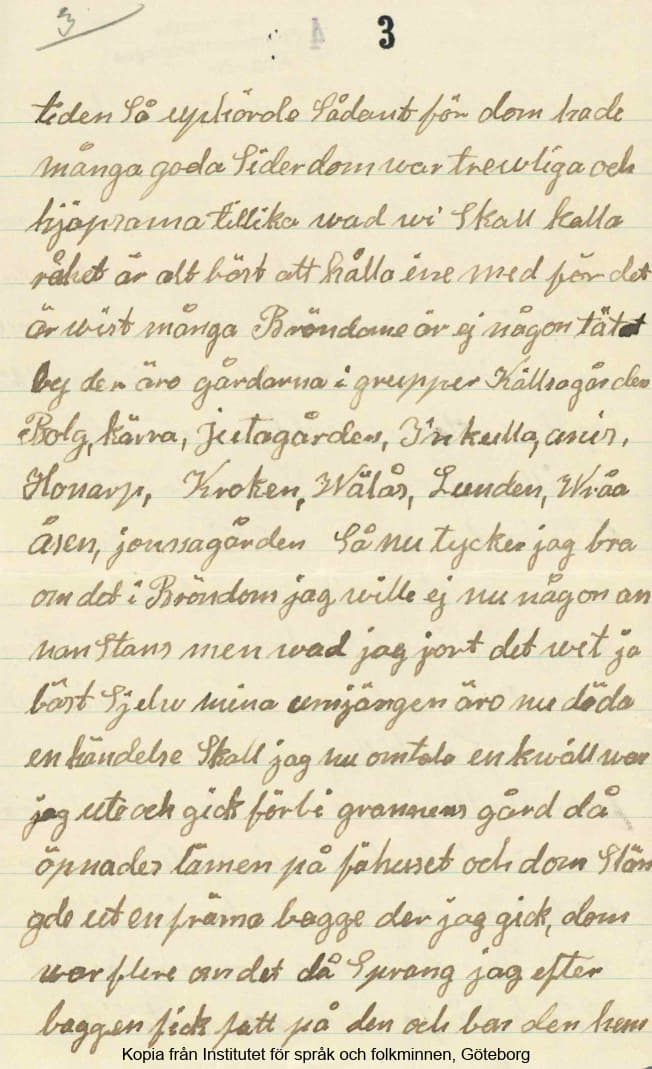 3
4 3
tiden Så uphörde Sådant för dom hade
många goda Sider dom war trewliga och
hjäpsama tillika wad wi Skall kalla
råhet är alt bäst att hålla ine med för det
är wist många Bröndome är ej någon tät
by der äro gårdarna i grupper Källsagården
Bolg, kärra, jutagården,
Honarp, Kroken, Wälås, Lunden, Wråa
åsen, jonssagården Så nu tycker jag bra
om det i Bröndom jag wille ej nu någon an
nan Stans men wad jag jort det wet ja
bäst Sjelw mina umjängen äro nu döda
en händelse Skall jag nu omtala en kwäll war
jag ute och gick förbi grannens gård då
öpnades lämen på fähuset och dom Slän
gde ut en främa bagge der jag gick, dom
war flere om det då Sprang jag efter
baggen fick fatt på den och bar den hem
Kopia från Institutet för språk och folkminnen, Göteborg